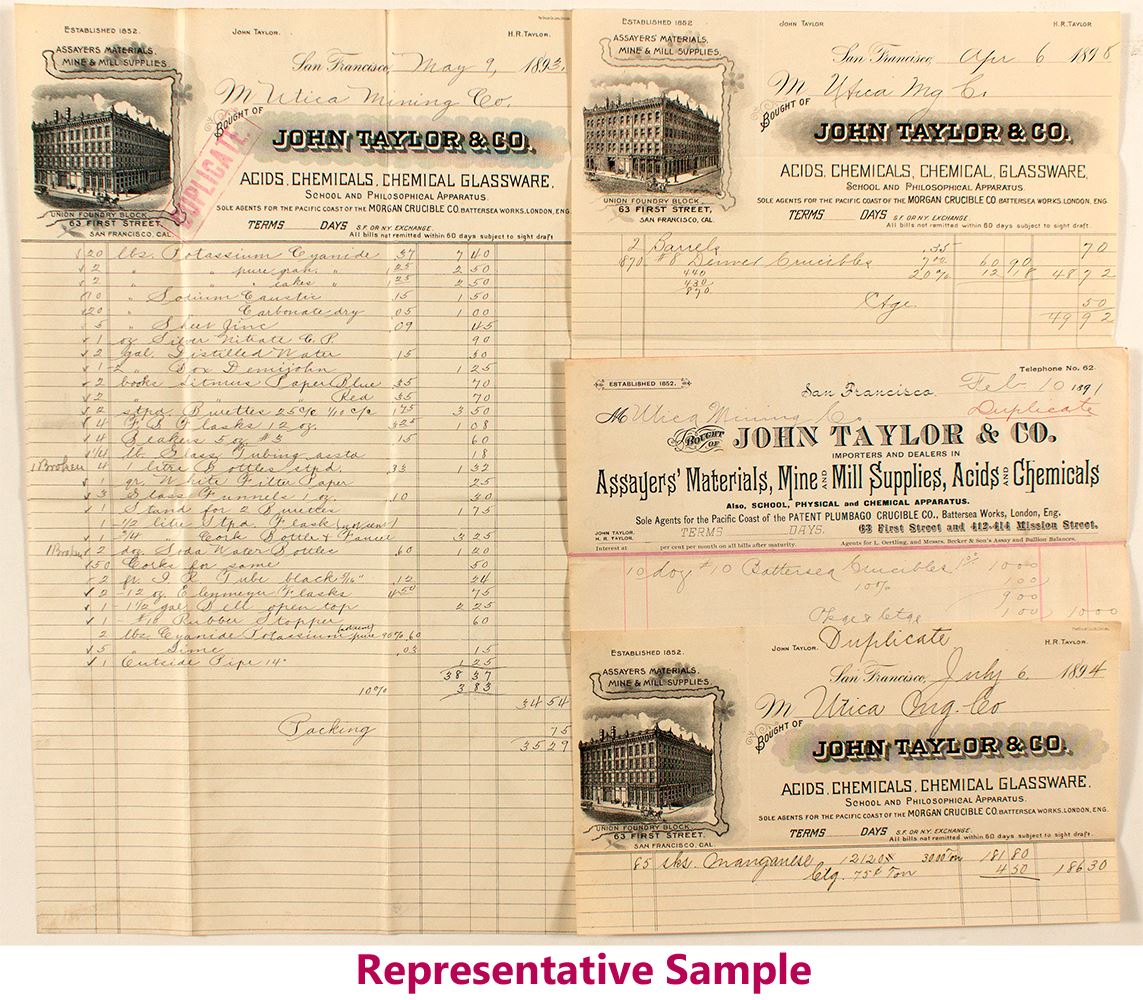 ESTABLISHED 1852.
JOHN TAYLOR.
H.R. TAYLOR.
ASSAYERS MATERIALS,
MINE & MILL SUPPLIES.
San Francisco, May 9, 1893.
M Utica Mining Co.
BOUGHT OF
JOHN TAYLOR & CO.
DUPLICATE
ACIDS, CHEMICALS, CHEMICAL GLASSWARE,
SCHOOL AND PHILOSOPHICAL APPARATUS.
SOLE AGENTS FOR THE PACIFIC COAST OF THE MORGAN CRUCIBLE CO. BATTERSEA WORKS, LONDON, ENG.
UNION FOUNDRY BLOCK,
63 FIRST STREET,
SAN FRANCISCO, CAL.
TERMS DAYS S.F. OR N.Y. EXCHANGE.
All bills not remitted within 60 days subject to sight draft.
20 lbs. Potassium Cyanide 37 7 40
2 " " pure gran. " 1 25 2 50
2 " " " cakes " 1 25 2 50
10 " Sodium Caustic 15 1 50
20 " Carbonate dry 05 1 00
5 " Sheet Zinc 09 45
1 oz Silver Nitrate C.P. 90
2 gal. Distilled Water 15 30
1 Box Demijohn 1 25
2 books Litmus Paper Blue 35 70
2 " " " Red 35 70
2 stpd. Burettes 25 c/c 1/10 c/c 175 3 50
4 Flasks 12 oz. 1 08
4 Beakers 5 oz #3 15 60
1/4 lb. Glass Tubing 18
1 Broken 4 1 litre Bottles stpd. 33 1 32
1 qr. White Filter Paper 25
3 Glass Funnels 1 oz. 10 30
1 Stand for 2 Burettes 1 75
1 - 1/2 litre Stpd. Flask (not sent)
1 - Cork Bottle & 3 25
1 Broken 2 doz. Soda Water Bottles 60 1 20
50 Corks for same 50
2 Tube black 12 24
2 - 12 oz. Erlenmeyer Flasks 4 50 75
1 - 1 1/2 gal Bell open top 2 25
1 - #10 Rubber Stopper 60
2 lbs. Cyanide Potassium pure 90% 60 (not sent)
5 " Lime 03 15
1 Outside Pipe 14" 1 25
38 37
10% 3 83
34 54
Packing 75
35 29
ESTABLISHED 1852
JOHN TAYLOR
H.R. TAYLOR
ASSAYERS' MATERIALS,
MINE & MILL SUPPLIES.
San Francisco, Apr 6 1898
M Utica Mg Co
BOUGHT OF
JOHN TAYLOR & CO.
ACIDS, CHEMICALS, CHEMICAL, GLASSWARE,
SCHOOL AND PHILOSOPHICAL APPARATUS.
SOLE AGENTS FOR THE PACIFIC COAST OF THE MORGAN CRUCIBLE CO. BATTERSEA WORKS, LONDON, ENG.
UNION FOUNDRY BLOCK
63 FIRST STREET,
SAN FRANCISCO, CAL.
TERMS DAYS S.F. OR N.Y. EXCHANGE.
All bills not remitted within 60 days subject to sight draft.
2 Barrels .35 70
870 #8 Denver Crucibles 7 00 60 90
440 20% 12 18 48 72
430
870
Ctge 50
49 92
Telephone No. 62.
ESTABLISHED 1852.
San Francisco, Feb 10 1891
M Utica Mining Co Duplicate
BOUGHT OF JOHN TAYLOR & CO.
IMPORTERS AND DEALERS IN
Assayers' Materials, Mine AND Mill Supplies, Acids AND Chemicals
Also, SCHOOL, PHYSICAL and CHEMICAL APPARATUS.
Sole Agents for the Pacific Coast of the PATENT PLUMBAGO CRUCIBLE CO., Battersea Works, London, Eng.
JOHN TAYLOR,
H. R. TAYLOR.
TERMS DAYS.
63 First Street and 412-414 Mission Street.
Interest at per cent per month on all bills after maturity.
Agents for L. Oertling, and Messrs. Becker & Son's Assay and Bullion Balances.
10 doz #10 Battersea Crucibles 1.00 10 00
10% 1 00
9 00
1 00 10 00
Duplicate
ESTABLISHED 1852.
JOHN TAYLOR.
H.R. TAYLOR.
ASSAYERS MATERIALS,
MINE & MILL SUPPLIES.
San Francisco, July 6 1894
M Utica Mg. Co
BOUGHT OF
JOHN TAYLOR & CO.
ACIDS, CHEMICALS, CHEMICAL GLASSWARE,
SCHOOL AND PHILOSOPHICAL APPARATUS.
SOLE AGENTS FOR THE PACIFIC COAST OF THE MORGAN CRUCIBLE CO. BATTERSEA WORKS, LONDON, ENG.
UNION FOUNDRY BLOCK,
63 FIRST STREET,
SAN FRANCISCO, CAL.
TERMS DAYS S.F. OR N.Y. EXCHANGE.
All bills not remitted within 60 days subject to sight draft.
85 sks. Manganese 12120 # 30 00 Ton 181 80
Ctg. 75¢ Ton 4 50 186 30
Representative Sample